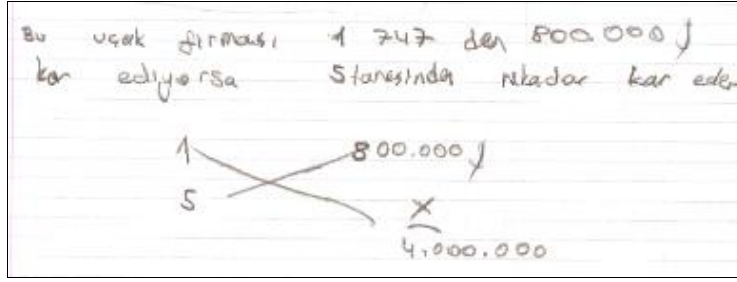 Bu uçak firması 1 747 den 800.000 $
kar ediyorsa 5 tanesinden nekadar kar eder
1 800.000 $
5 X
4.000.000